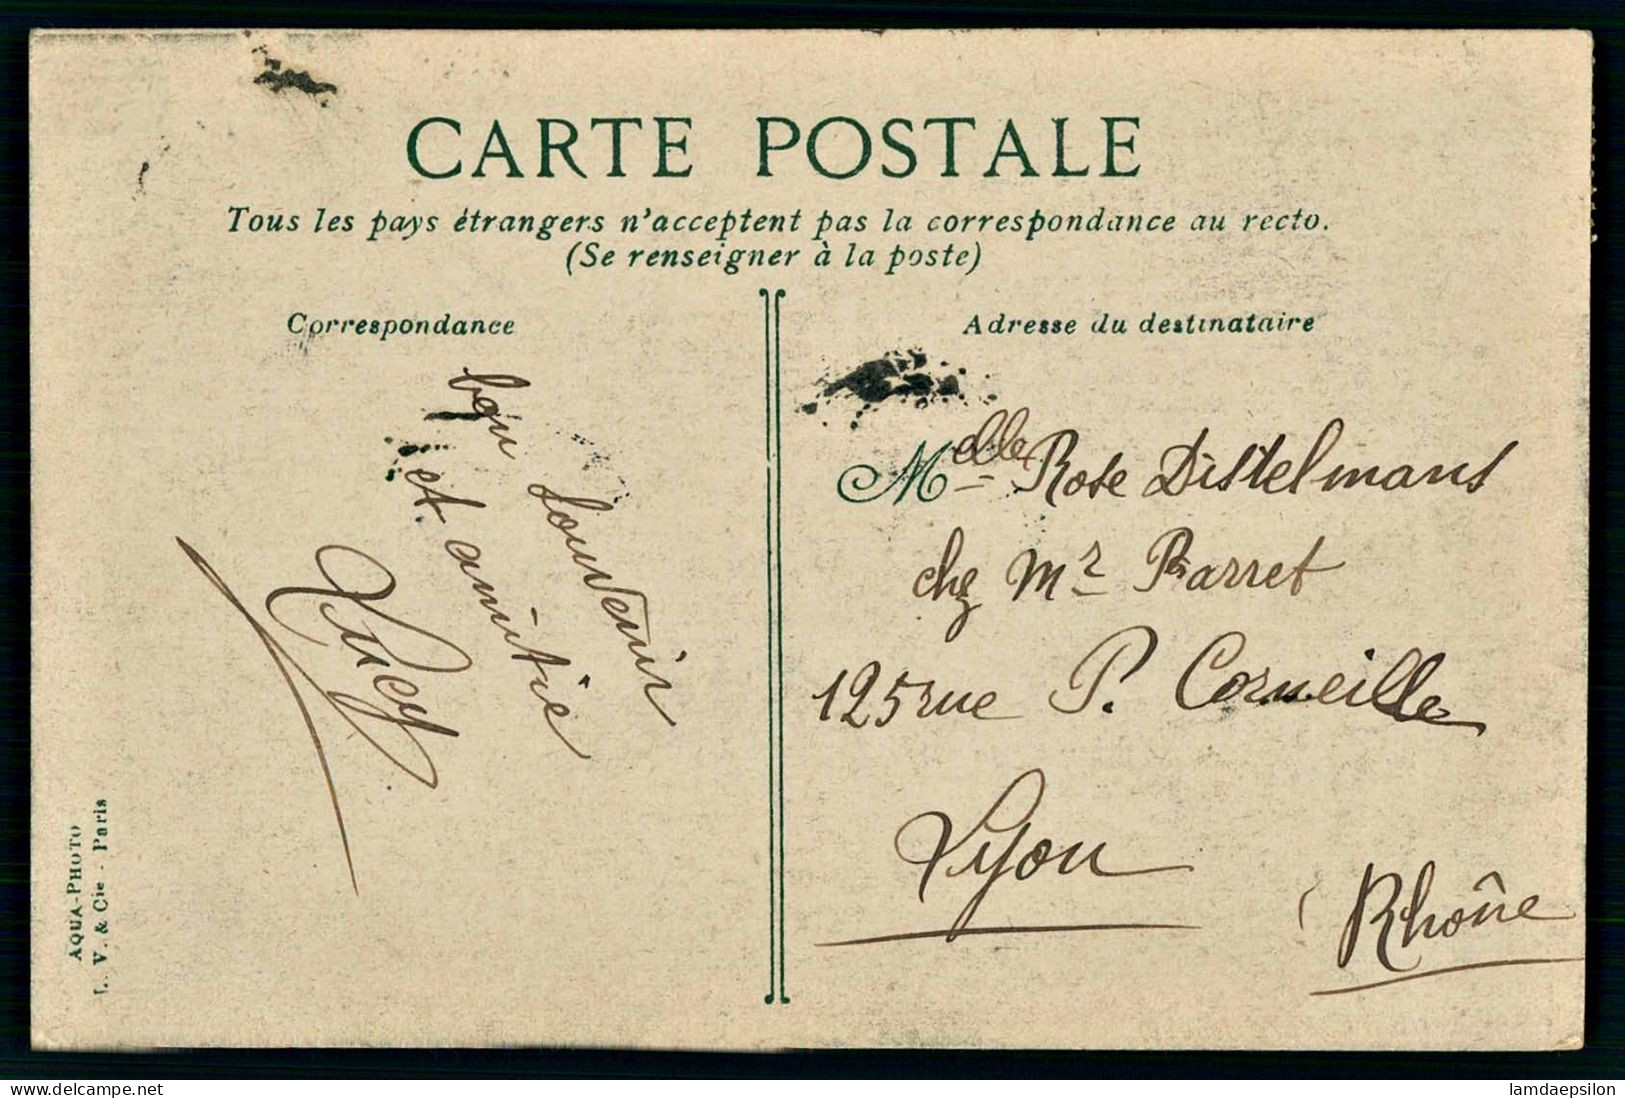 CARTE POSTALE
Tous les pays étrangers n'acceptent pas la correspondance au recto.
(Se renseigner à la poste)
Correspondance
bon souvenir
et amitié
Lucy
AQUA-PHOTO
L. V. & Cie - Paris
Adresse du destinataire
Melle Rose Distelmans
chz Mr Barret
125 rue P. Corneille
Lyon
(Rhône
delcampe.net
lamdaepsilon